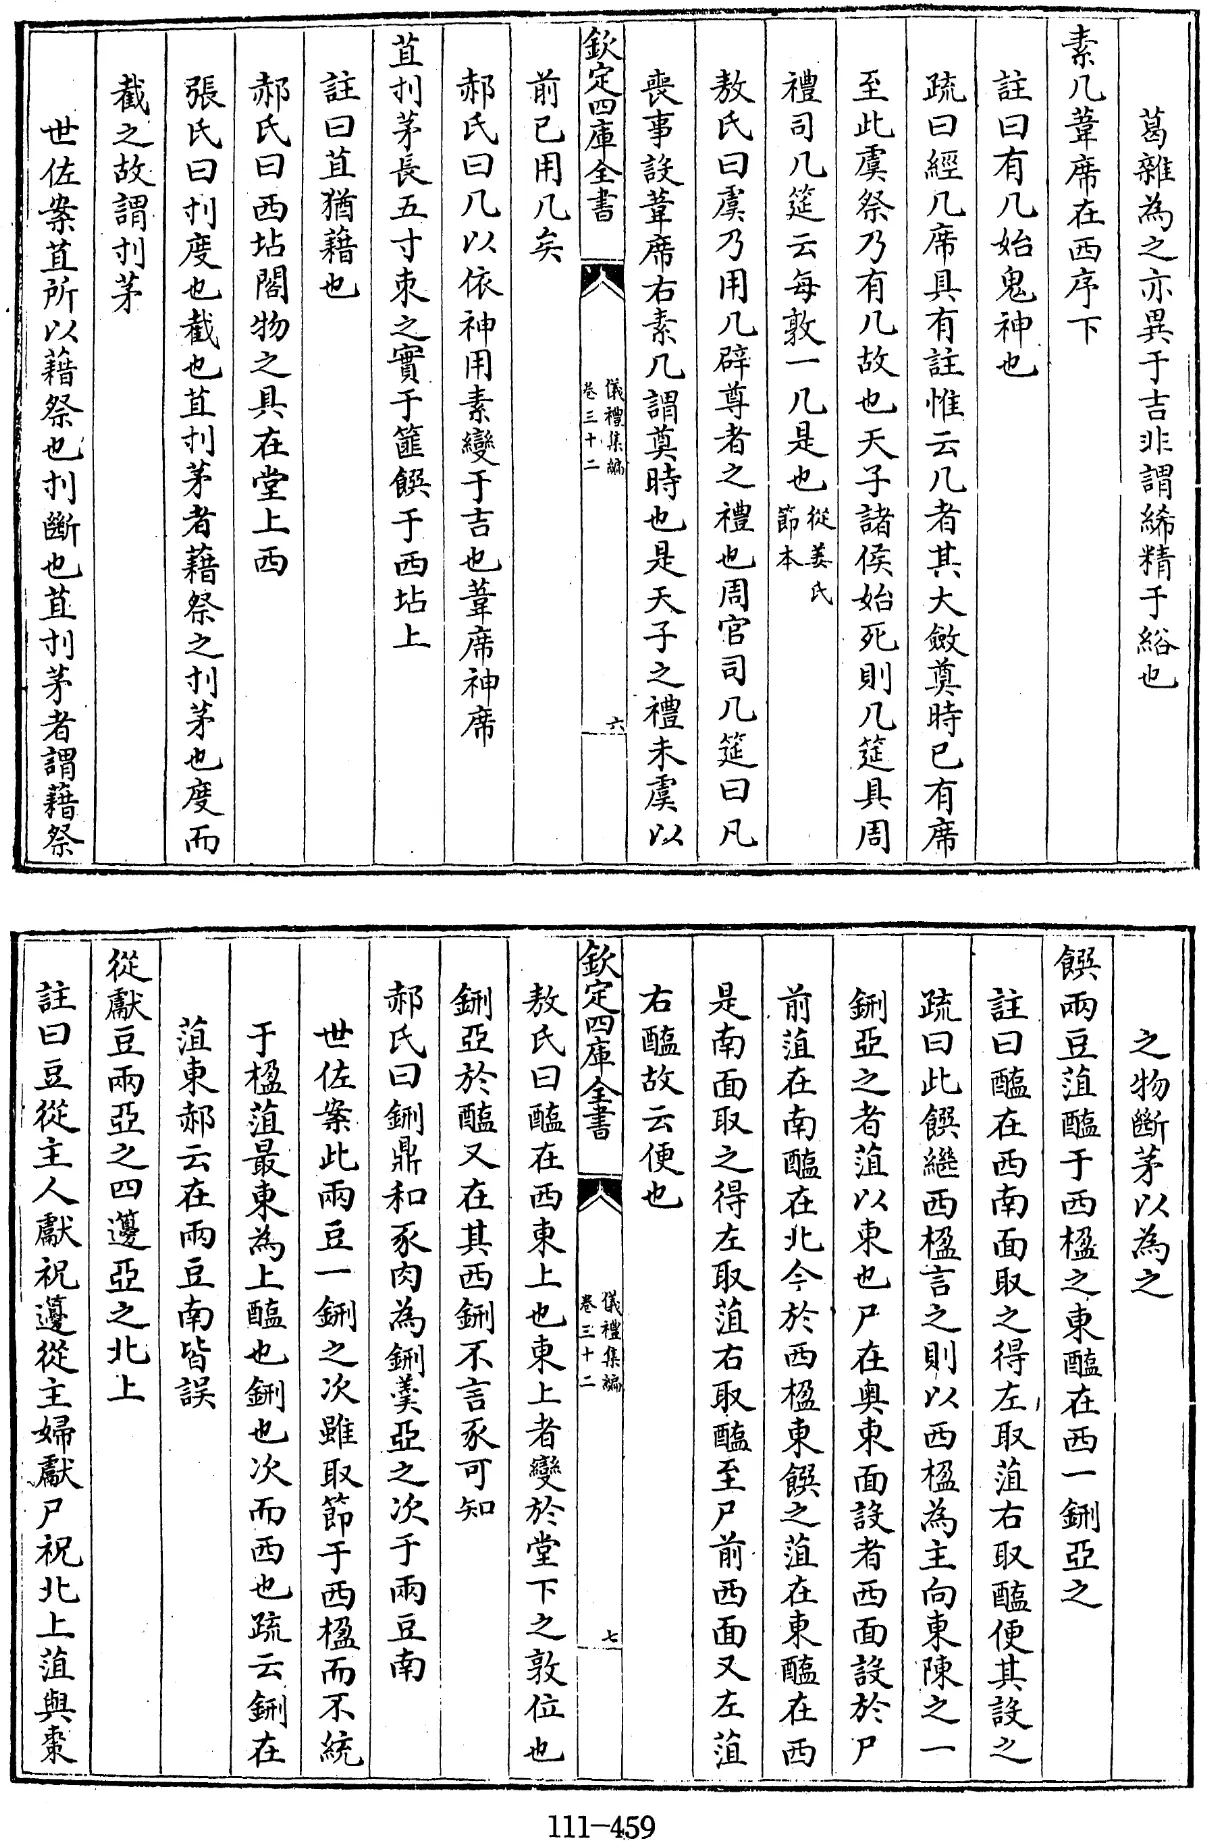 葛雜為之亦異于吉非謂絺精于綌也
素几葦席在西序下
註曰有几始鬼神也
疏曰經几席具有註惟云几者其大斂奠時已有席
至此虞祭乃有几故也天子諸侯始死則几筵具周
禮司几筵云每敦一几是也從姜氏節本
敖氏曰虞乃用几辟尊者之禮也周官司几筵曰凡
喪事設葦席右素几謂奠時也是天子之禮未虞以
欽定四庫全書
儀禮集編
卷三十二
六
前已用几矣
郝氏曰几以依神用素變于吉也葦席神席
苴刌茅長五寸束之實于篚饌于西坫上
註曰苴猶藉也
郝氏曰西坫閣物之具在堂上西
張氏曰刌度也截也苴刌茅者藉祭之刌茅也度而
截之故謂刌茅
世佐案苴所以藉祭也刌斷也苴刌茅者謂藉祭
之物斷茅以為之
饌兩豆菹醢于西楹之東醢在西一鉶亞之
註曰醢在西南面取之得左取菹右取醢便其設之
疏曰此饌繼西楹言之則以西楹為主向東陳之一
鉶亞之者菹以東也尸在奥東面設者西面設於尸
前菹在南醢在北今於西楹東饌之菹在東醢在西
是南面取之得左取菹右取醢至尸前西面又左菹
右醢故云便也
欽定四庫全書
儀禮集編
卷三十二
七
敖氏曰醢在西東上也東上者變於堂下之敦位也
鉶亞於醢又在其西鉶不言豕可知
郝氏曰鉶鼎和豕肉為鉶羮亞之次于兩豆南
世佐案此兩豆一鉶之次雖取節于西楹而不統
于楹菹最東為上醢也鉶也次而西也疏云鉶在
菹東郝云在兩豆南皆誤
從獻豆兩亞之四籩亞之北上
註曰豆從主人獻祝籩從主婦獻尸祝北上菹與棗
111-459